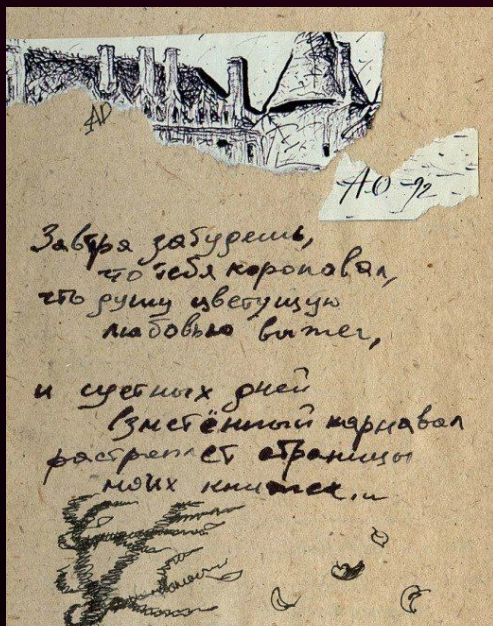 АО
АО-92
Завтра забудешь,
что тебя короновал,
что душу цветущую
любовью выжег,
и суетных дней
взметённый карнавал
растреплет страницы
моих книжек...